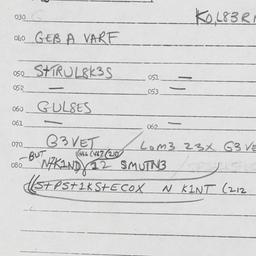 030 KOL83R
040 GEB A VARF
050 S+TRUL8K3S 051 —
052 — 053 —
060 GUL8ES
061 — 062 —
070 G3VET LOM3 23X G3VE
-BUT
080 N7K1ND 12 SMUTN3
(S+PS+1KS+ECOX N K1NT (212